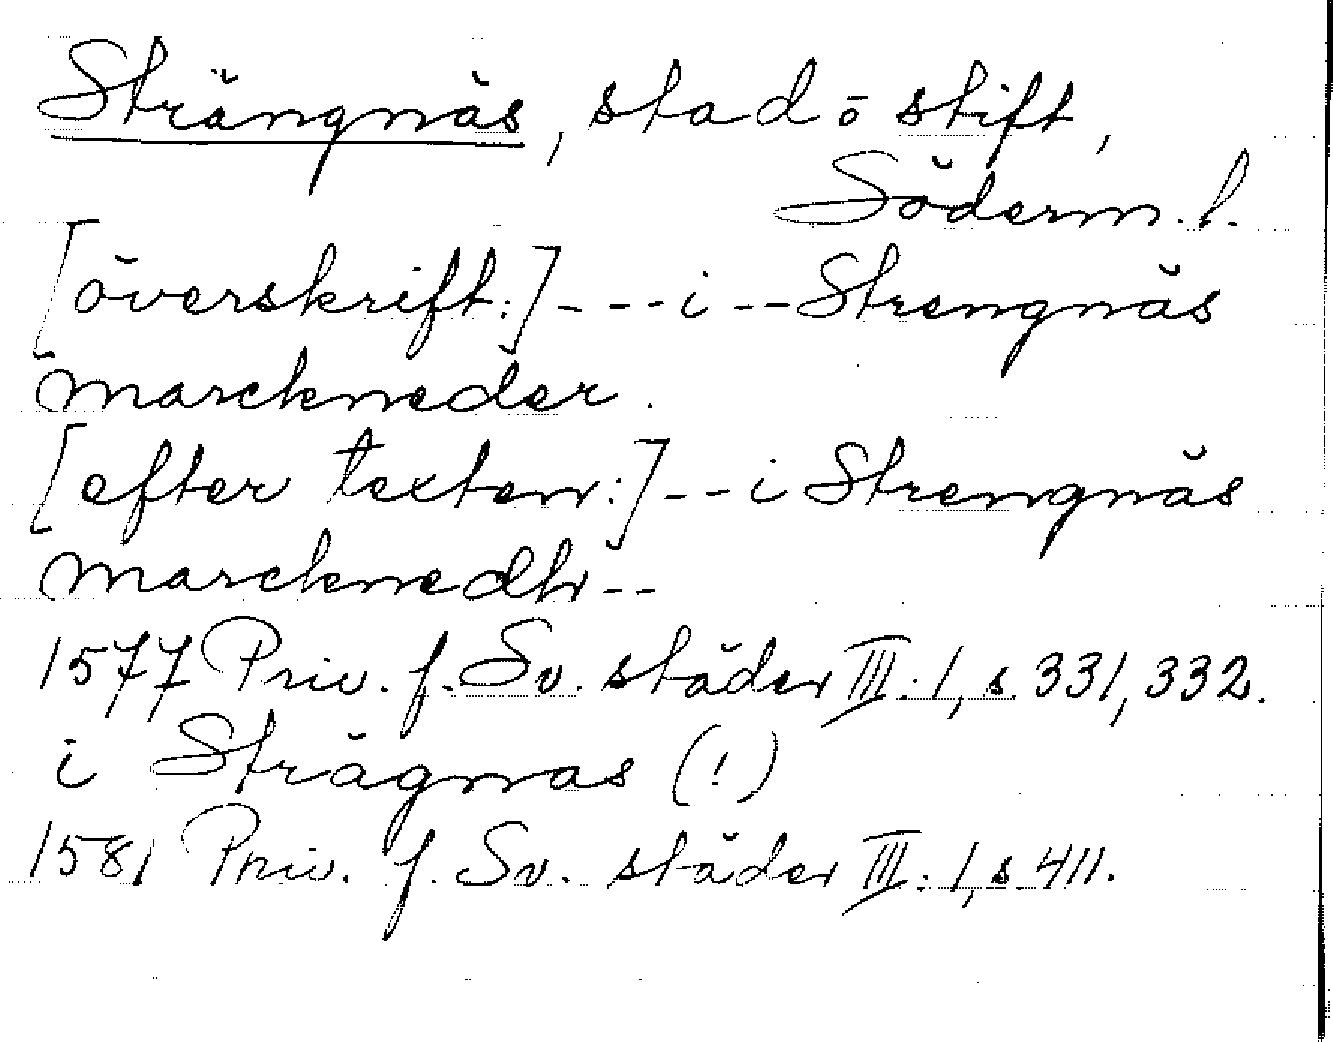 Strängnäs, stad o stift,
Söderm. l.
[överskrift:] - - - i - - Strengnäs
marckneder.
[efter texten:] - - i Strengnäs
marcknedhr - -
1577 Priv. f. Sv. städer III:1, s 331, 332.
i Strägnas (!)
1581 Priv. f. Sv. städer III:1, s 411.